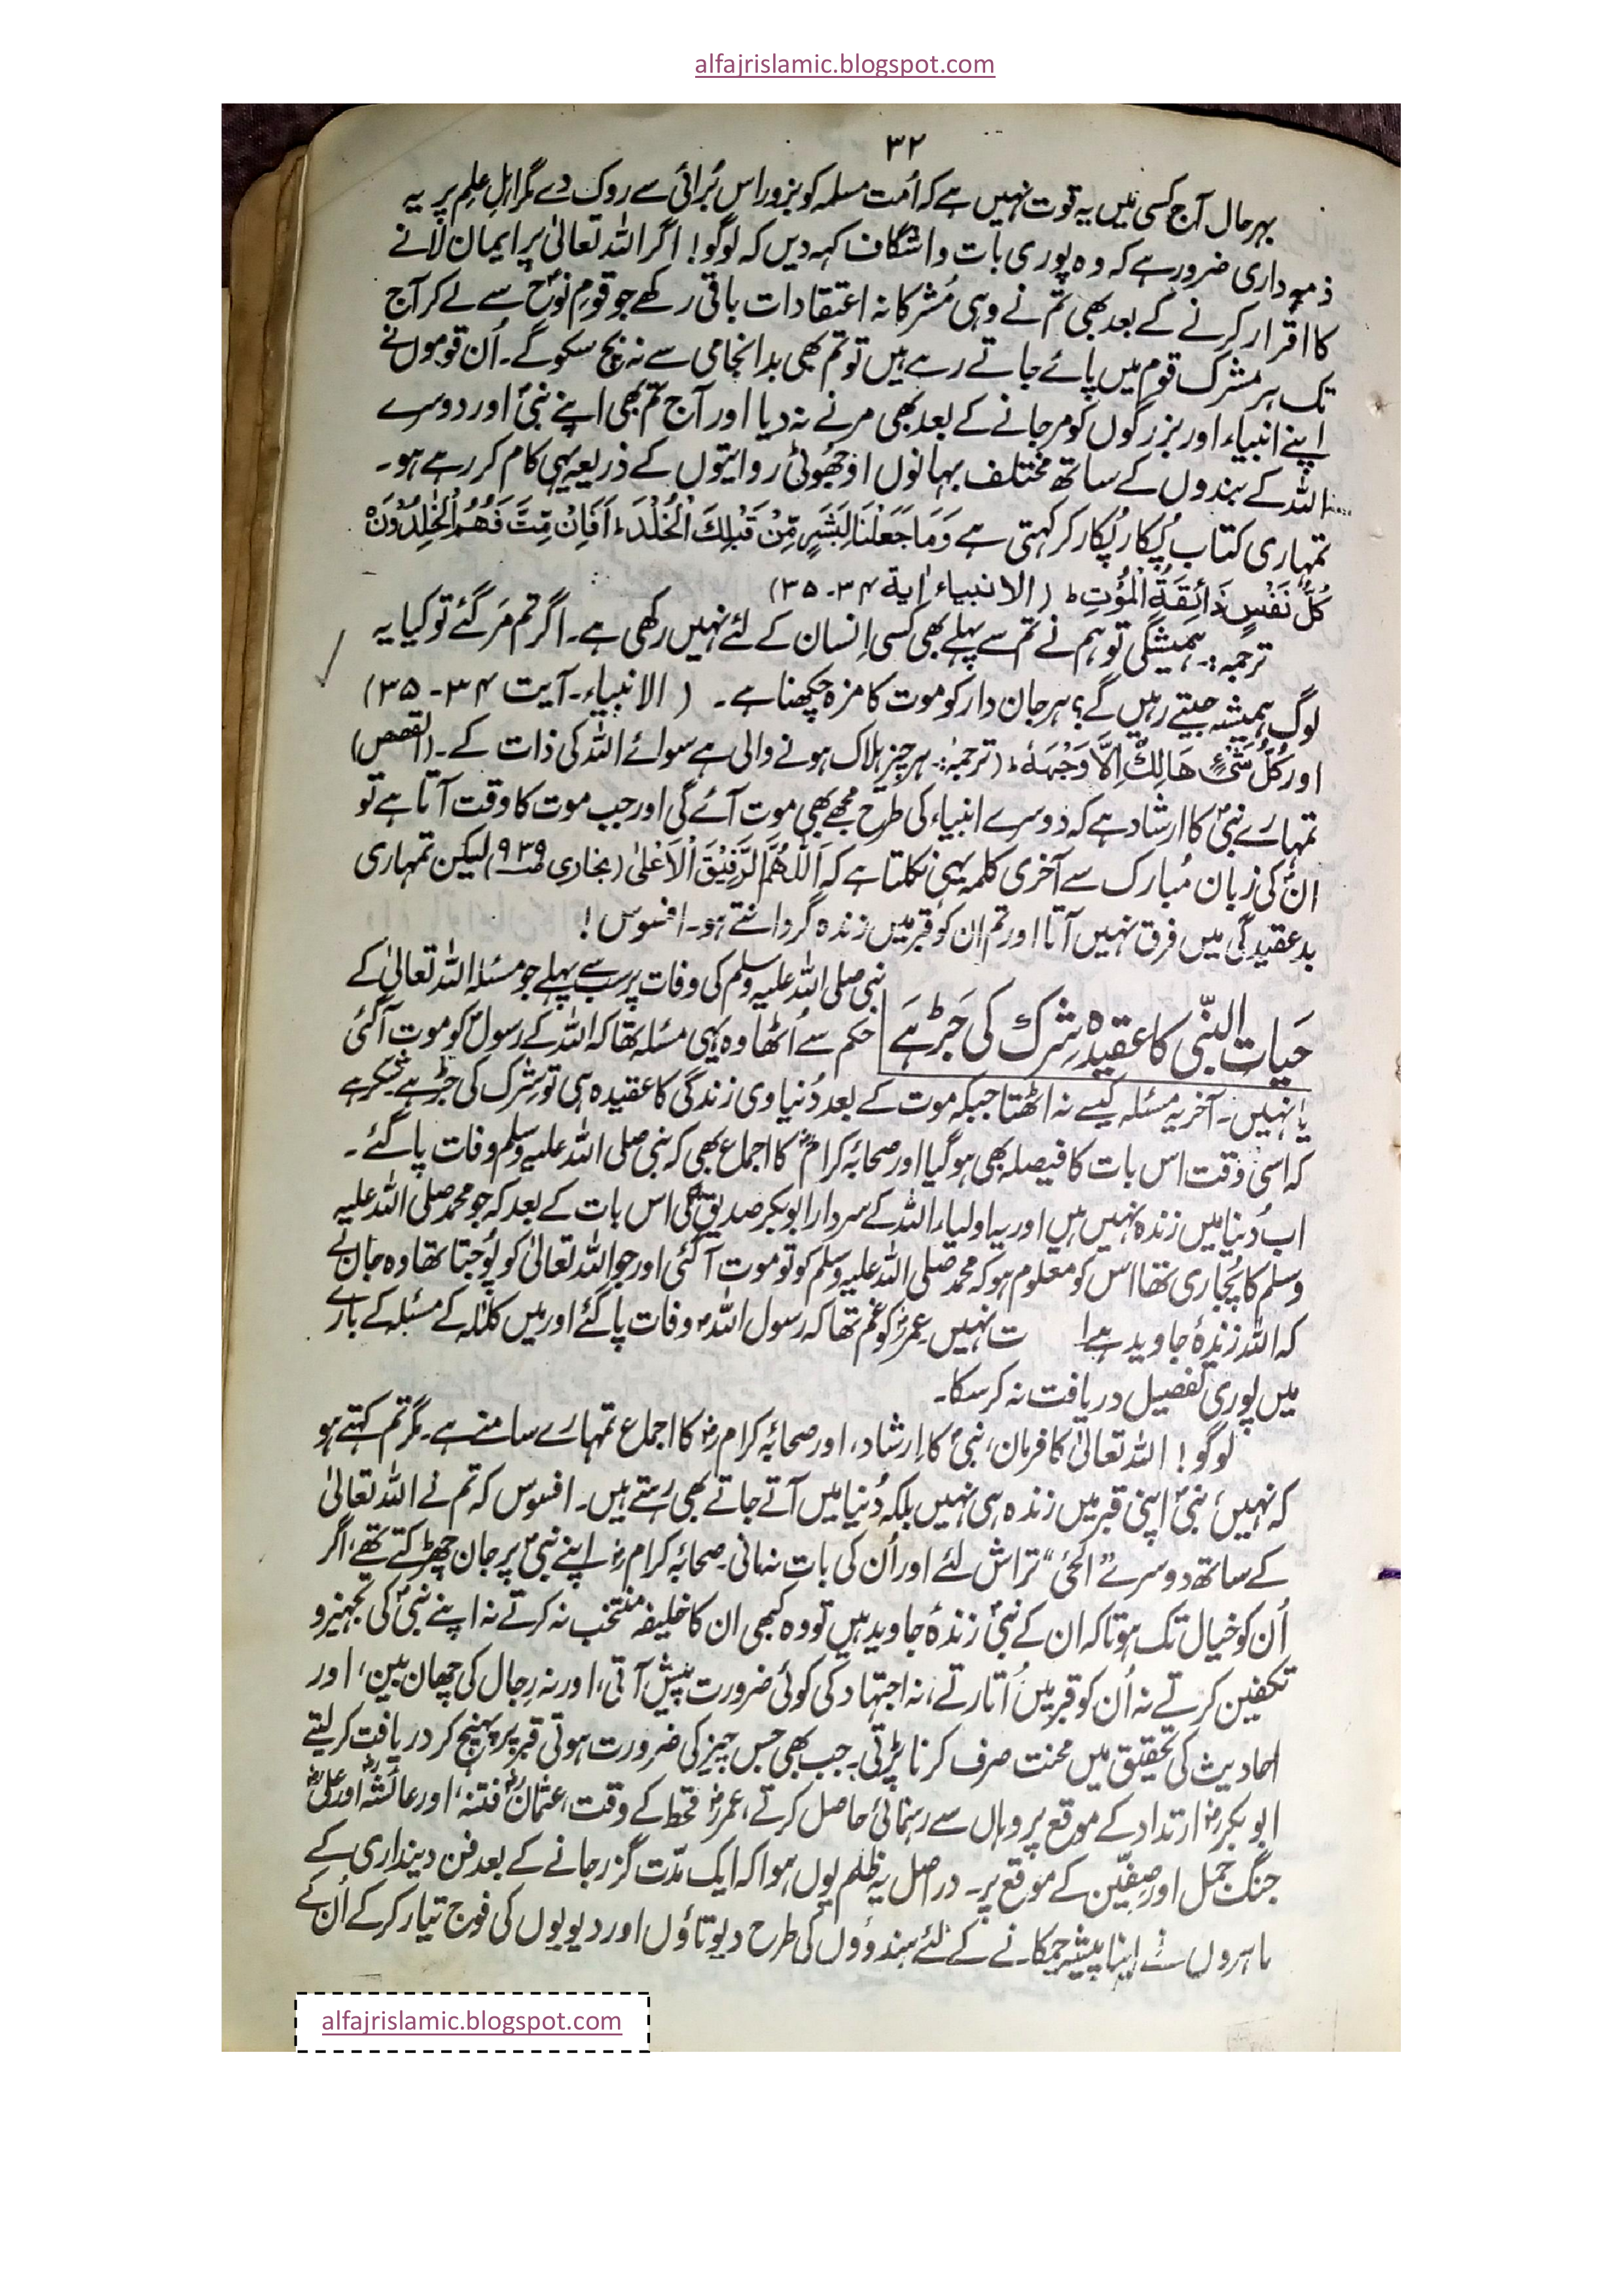 alfajrislamic.blogspot.com
۳۲
بہرحال آج کسی میں یہ قوت نہیں ہے کہ اُمت مسلمہ کو بزور اس بُرائی سے روک دے مگر اہلِ علِم پر یہ
ذمہ داری ضرور ہے کہ وہ پوری بات واشگاف کہہ دیں کہ لوگو! اگر اللہ تعالیٰ پر ایمان لانے
کا اقرار کرنے کے بعد بھی تم نے وہی مُشرکانہ اعتقادات باقی رکھے جو قومِ نوحؑ سے لے کر آج
تک ہر مشرک قوم میں پائے جاتے رہے ہیں تو تم بھی بدانجامی سے نہ بچ سکو گے۔ اُن قوموں نے
اپنے انبیاء اور بزرگوں کو مرجانے کے بعد بھی مرنے نہ دیا اور آج تم بھی اپنے نبیؐ اور دوسرے
اللہ کے بندوں کے ساتھ مختلف بہانوں اوجھُوٹی روایتوں کے ذریعہ یہی کام کر رہے ہو۔
تمہاری کتاب پُکار پُکار کر کہتی ہے وَمَا جَعَلْنَا لِبَشَرٍ مِّنْ قَبْلِكَ الْخُلْدَ ؕ اَفَاِنْ مِّتَّ فَهُمُ الْخٰلِدُوْنَ ۝
كُلُّ نَفْسٍ ذَائِقَةُ الْمَوْتِ ؕ (الانبیاء اٰیة ۳۴-۳۵)
ترجمہ:۔ ہمیشگی تو ہم نے تم سے پہلے بھی کسی اِنسان کے لئے نہیں رکھی ہے۔ اگر تم مَر گئے تو کیا یہ
لوگ ہمیشہ جیتے رہیں گے؟ ہر جان دار کو موت کا مزہ چکھنا ہے۔ (الانبیاء۔ آیت ۳۴-۳۵)
اور كُلُّ شَیْءٍ هَالِكٌ اِلَّا وَجْهَهٗ ؕ (ترجمہ:۔ ہر چیز ہلاک ہونے والی ہے سوائے اللہ کی ذات کے۔ (القصص)
تمہارے نبیؐ کا ارشاد ہے کہ دوسرے انبیاء کی طرح مجھے بھی موت آئے گی اور جب موت کا وقت آتا ہے تو
انؐ کی زبان مُبارک سے آخری کلمہ یہی نکلتا ہے کہ اَللّٰهُمَّ الرَّفِیْقَ الْاَعْلٰی (بخاری ص۹۳۹) لیکن تمہاری
بدعقیدگی میں فرق نہیں آتا اور تم ان کو قبر میں زندہ گردانتے ہو۔ افسوس!
حَیات النبّی کا عقیدہ شِرک کی جَڑ ہے
نبی صلی اللہ علیہ وسلم کی وفات پر سب سے پہلے جو مسئلہ اللہ تعالیٰ کے
حکم سے اُٹھا وہ یہی مسئلہ تھا کہ اللہ کے رسولؐ کو موت آگئی
یا نہیں۔ آخر یہ مسئلہ کیسے نہ اٹھتا جبکہ موت کے بعد دُنیاوی زندگی کا عقیدہ ہی تو شِرک کی جڑ ہے شکر ہے
کہ اسی وقت اس بات کا فیصلہ بھی ہو گیا اور صحابۂ کرامؓ کا اجماع بھی کہ نبی صلی اللہ علیہ وسلم وفات پا گئے۔
اب دُنیا میں زندہ نہیں ہیں اور یہ اولیاء اللہ کے سردار ابوبکر صدیقؓ کی اس بات کے بعد کہ جو محمد صلی اللہ علیہ
وسلم کا پُجاری تھا اس کو معلوم ہو کہ محمد صلی اللہ علیہ وسلم کو تو موت آگئی اور جو اللہ تعالیٰ کو پُوجتا تھا وہ جان لے
کہ اللہ زندۂ جاوید ہے ت نہیں۔ عمرؓ کو غم تھا کہ رسول اللہؐ وفات پا گئے اور میں کلالہ کے مسئلہ کے بارے
میں پوری تفصیل دریافت نہ کر سکا۔
لوگو! اللہ تعالیٰ کا فرمان، نبیؐ کا اِرشاد، اور صحابۂ کرامؓ کا اجماع تمہارے سامنے ہے۔ مگر تم کہتے ہو
کہ نہیں، نبیؐ اپنی قبر میں زندہ ہی نہیں بلکہ دُنیا میں آتے جاتے بھی رہتے ہیں۔ افسوس کہ تم نے اللہ تعالیٰ
کے ساتھ دوسرے "الحیّ" تراش لئے اور اُن کی بات نہ مانی۔ صحابۂ کرامؓ اپنے نبیؐ پر جان چھڑکتے تھے، اگر
اُن کو خیال تک ہوتا کہ ان کے نبیؐ زندۂ جاوید ہیں تو وہ کبھی ان کا خلیفہ منتخب نہ کرتے نہ اپنے نبیؐ کی تجہیز و
تکفین کرتے نہ اُن کو قبر میں اُتارتے، نہ اجتہاد کی کوئی ضرورت پیش آتی، اور نہ رِجال کی چھان بین، اور
احادیث کی تحقیق میں محنت صرف کرنا پڑتی۔ جب بھی جس چیز کی ضرورت ہوتی قبر پر پہنچ کر دریافت کر لیتے
ابوبکرؓ ارتداد کے موقع پر وہاں سے رہنمائی حاصل کرتے، عمرؓ قحط کے وقت، عثمانؓ فتنہ، اور عائشہؓ اور علیؓ
جنگ جمل اور صِفّین کے موقع پر۔ دراصل یہ ظلم یوں ہوا کہ ایک مدّت گزر جانے کے بعد فن دینداری کے
ماہروں نے اپنا پیشہ چمکانے کے لئے ہندوؤں کی طرح دیوتاؤں اور دیویوں کی فوج تیار کر کے اُن کے
alfajrislamic.blogspot.com